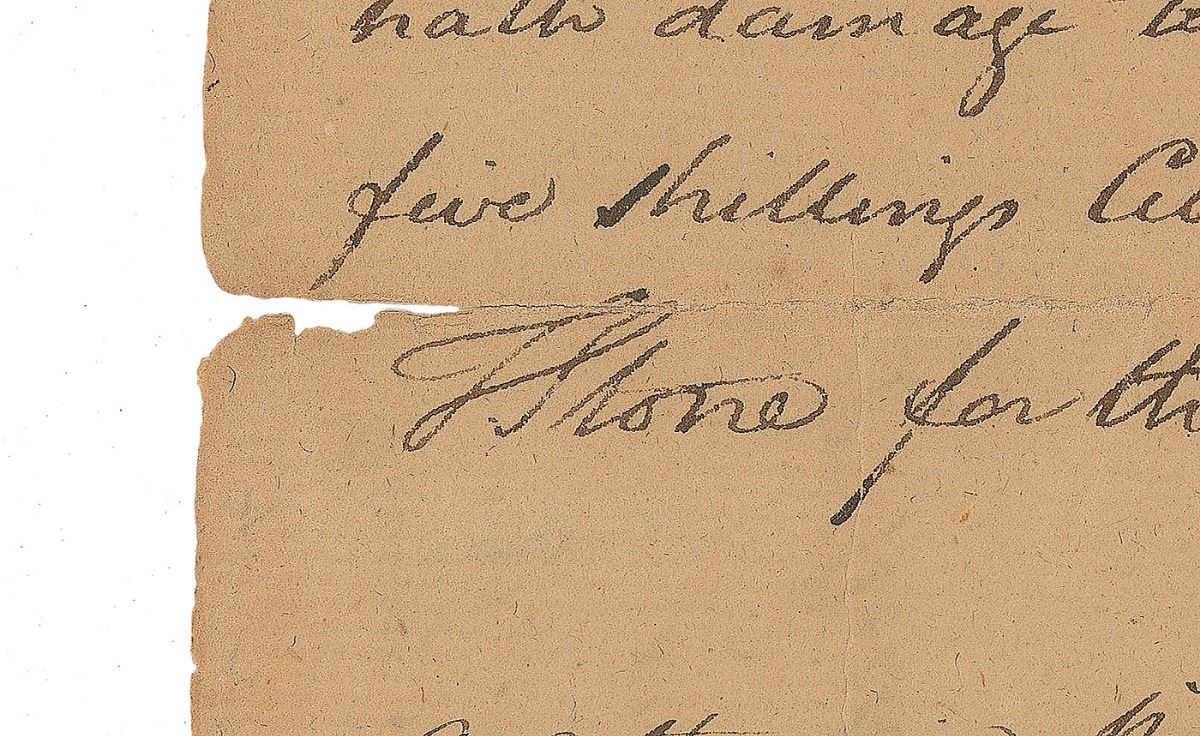 hath damage to
five shillings
T Stone for th